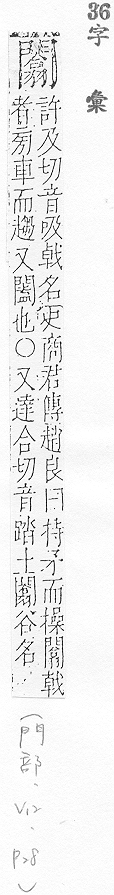 36字彙
闟
許及切音吸戟名史商君傳趙良曰持矛而操闟戟
者旁車而趨又闔也○又達合切音踏土闟谷名
(門部.V12.P28)